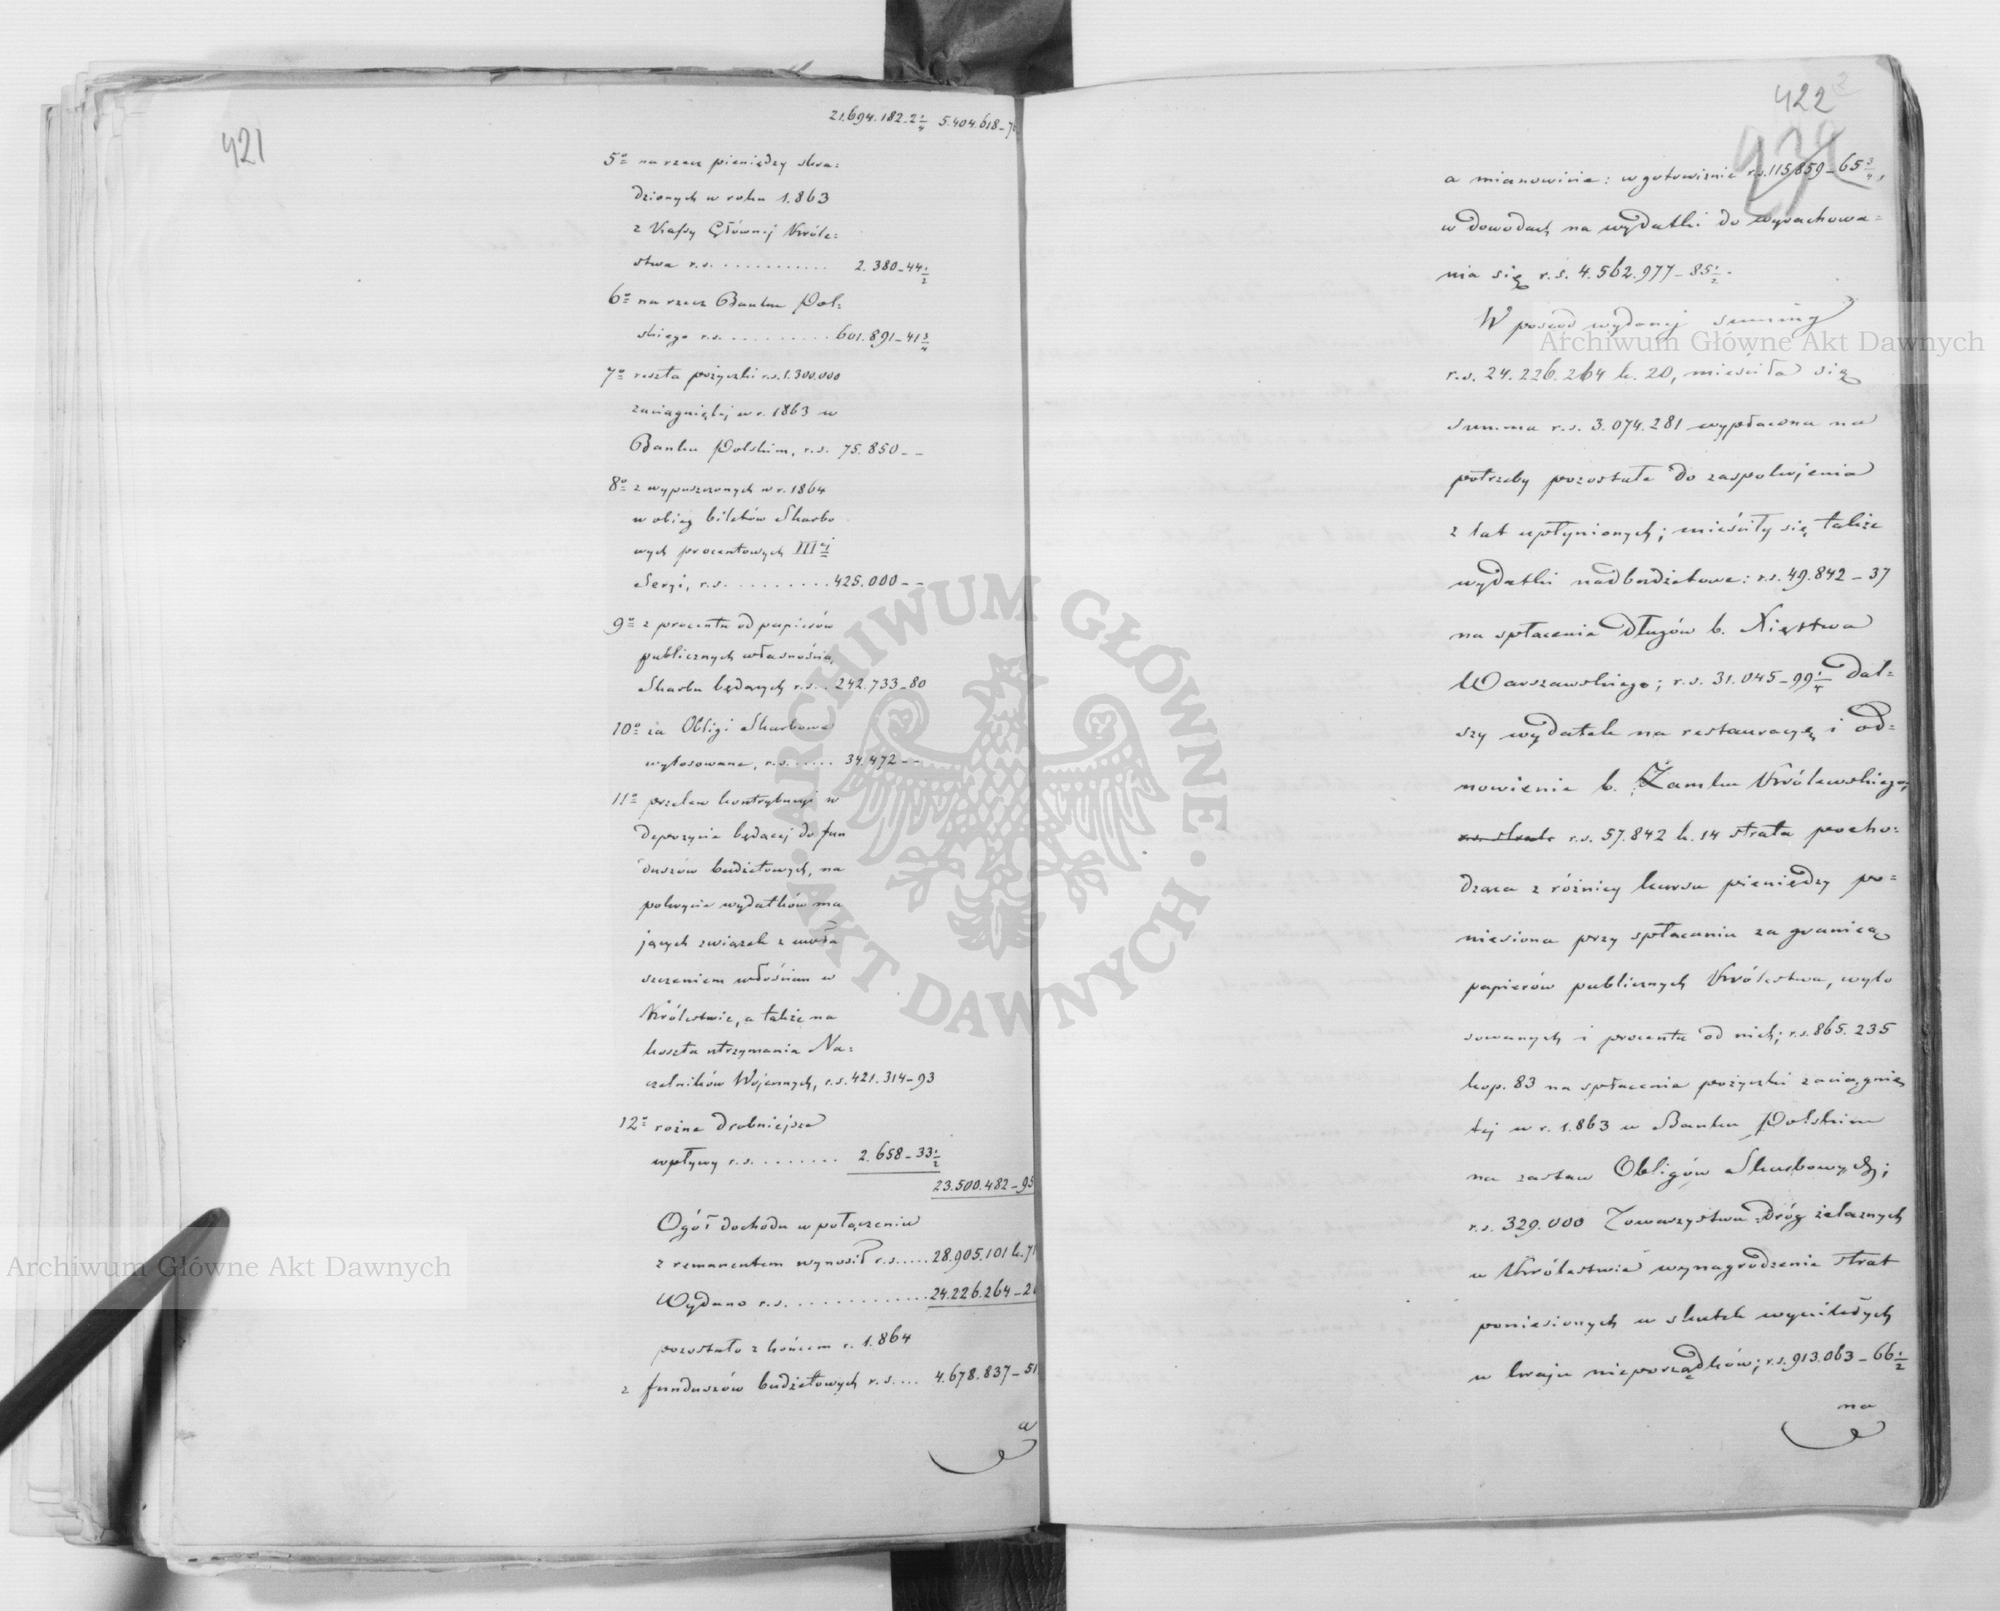 421
21.694.182-2 1/4 5.404.618-7
5o na rzecz pieniędzy skra=
dzionych w roku 1.863
z Kassy Głównej Króle=
stwa r.s. ........... 2.380-44 1/2
6o na rzecz Banku Pol=
skiego r.s. .......... 601.891-41 3/4
7o reszta pożyczki r.s. 1.300.000
zaciągniętej w r. 1863 w
Banku Polskim, r.s. 75.850--
8o z wypuszczonych w r. 1864
w obieg biletów Skarbo
wych procentowych IIIej
Seryi, r.s. ......... 425.000--
9o z procentu od papierów
publicznych własnością,
Skarbu będących r.s. . 242.733-80
10o za Obligi Skarbowe
wylosowane, r.s. ..... 34.472--
11o przelew kontrybucyi w
depozycie będącej do fun
duszów budżetowych, na
pokrycie wydatków ma
jących związek z uwła
szczeniem włościan w
Królestwie, a także na
koszta utrzymania Na=
czelników Wojennych, r.s. 421.314-93
12o rożne drobniejsze
wpływy r.s. ........ 2.658-33 1/2
23.500.482-95
Ogół dochodu w połączeniu
z remanentem wynosił r.s. .... 28.905.101 k. 71
Wydano r.s. ............. 24.226.264-20
pozostało z końcem r. 1.864
z funduszów budżetowych r.s. ... 4.678.837-51
a
422
a mianowicie: w gotowiznie r.s. 115.859-65 3/4,
w dowodach na wydatki do wyrachowa=
nia się r.s. 4.562.977-85 1/2.
W pośród wydanej summy
r.s. 24.226.264 k. 20, mieściła się
summa r.s. 3.074.281 wypłacona na
potrzeby pozostałe do zaspokojenia
z lat upłynionych; mieściły się także
wydatki nadbudżetowe: r.s. 49.842-37
na spłacenie długów b. Xięstwa
Warszawskiego; r.s. 31.045-99 1/4 dal=
szy wydatek na restauracyę i od=
nowienie b. Zamku Królewskiego;
r.s. strata r.s. 57.842 k. 14 strata pocho=
dząca z różnicy kursu pieniędzy po=
niesiona przy spłacaniu za granicą
papierów publicznych Królestwa, wylo
sowanych i procentu od nich; r.s. 865.235
kop. 83 na spłacenie pożyczki zaciągnię
tej w r. 1.863 w Banku Polskim
na zastaw Obligów Skarbowych;
r.s. 329.000 Towarzystwu Dróg żelaznych
w Królestwie wynagrodzenie strat
poniesionych w skutek wynikłych
w kraju nieporządków; r.s. 913.063-66 1/2
na
Archiwum Główne Akt Dawnych
Archiwum Główne Akt Dawnych
ARCHIWUM GŁÓWNE · AKT DAWNYCH ·